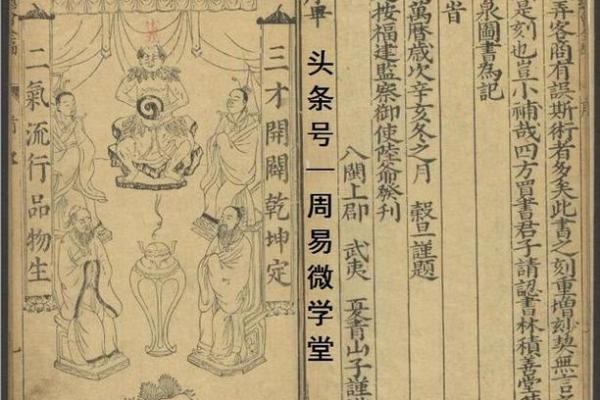 弄客商有誤斯術者多矣此書之刻重增妙契無言
是刻也豈小補哉四方買書君子請認書林積善堂
泉圖書為記
旹
萬曆歲次辛亥冬之月 穀旦謹題
按福建監察御使陸爺發刊
八閩上郡 武夷 夏青山子謹
头条号—周易微学堂
三才開闢乾坤定
二氣流行品物生